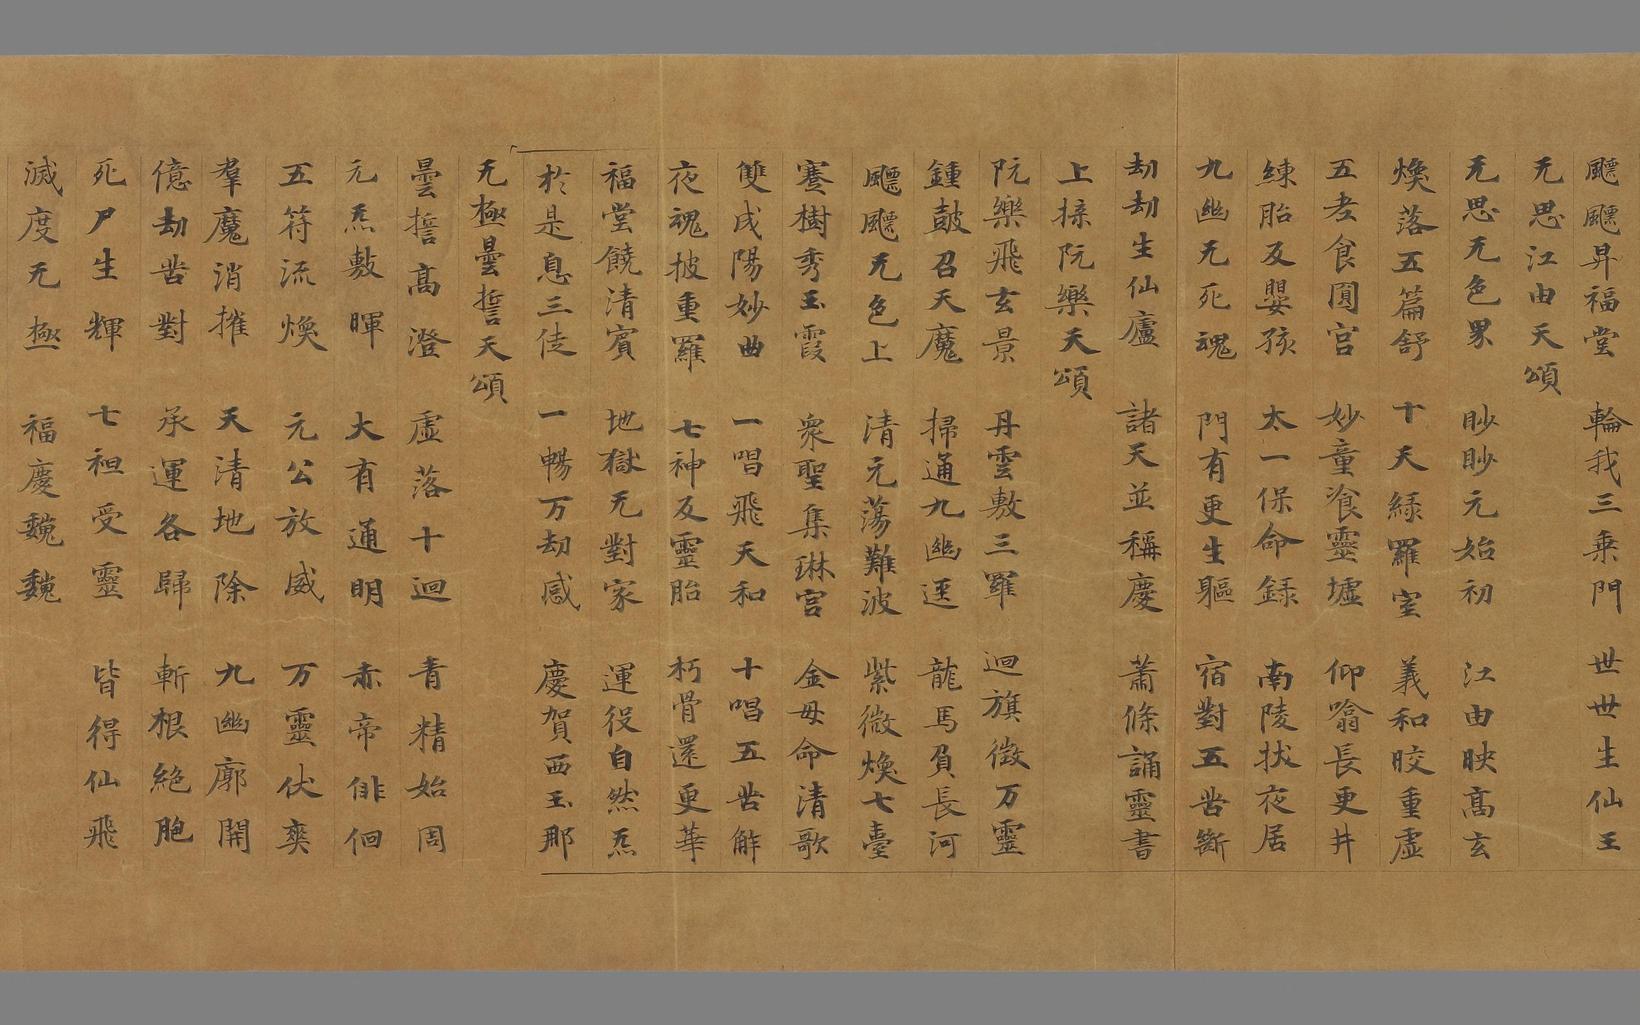 飃飃昇福堂 輪我三乗門 世世生仙王
无思江由天頌
无思无色界 眇眇元始初 江由映髙玄
煥落五篇舒 十天緑羅室 義和晈重虚
五老食圎宫 妙童飡靈墟 仰噏長更井
練胎反嬰孩 太一保命録 南陵拔夜居
九幽无死魂 門有更生軀 宿對五苦斷
劫劫生仙廬 諸天並稱慶 蕭條誦靈書
上揲阮樂天頌
阮樂飛玄景 丹雲敷三羅 迴旗徵万靈
鍾鼓召天魔 掃通九幽逕 龍馬負長河
飃飃无色上 清元蕩難波 紫微煥七臺
騫樹秀玉霞 衆聖集琳宫 金母命清歌
雙戍陽妙曲 一唱飛天和 十唱五苦觧
夜魂披重羅 七神反靈胎 朽骨還更華
福堂饒清賓 地獄无對家 運役自然炁
於是息三徒 一暢万劫感 慶賀西玉那
无極曇誓天頌
曇誓髙澄 虚落十迴 青精始周
元炁敷暉 大有通明 赤帝俳佪
五符流煥 元公放威 万靈伏奭
羣魔消摧 天清地除 九幽廓開
億劫苦對 承運各歸 斬根絶胞
死尸生輝 七祖受靈 皆得仙飛
滅度无極 福慶巍巍